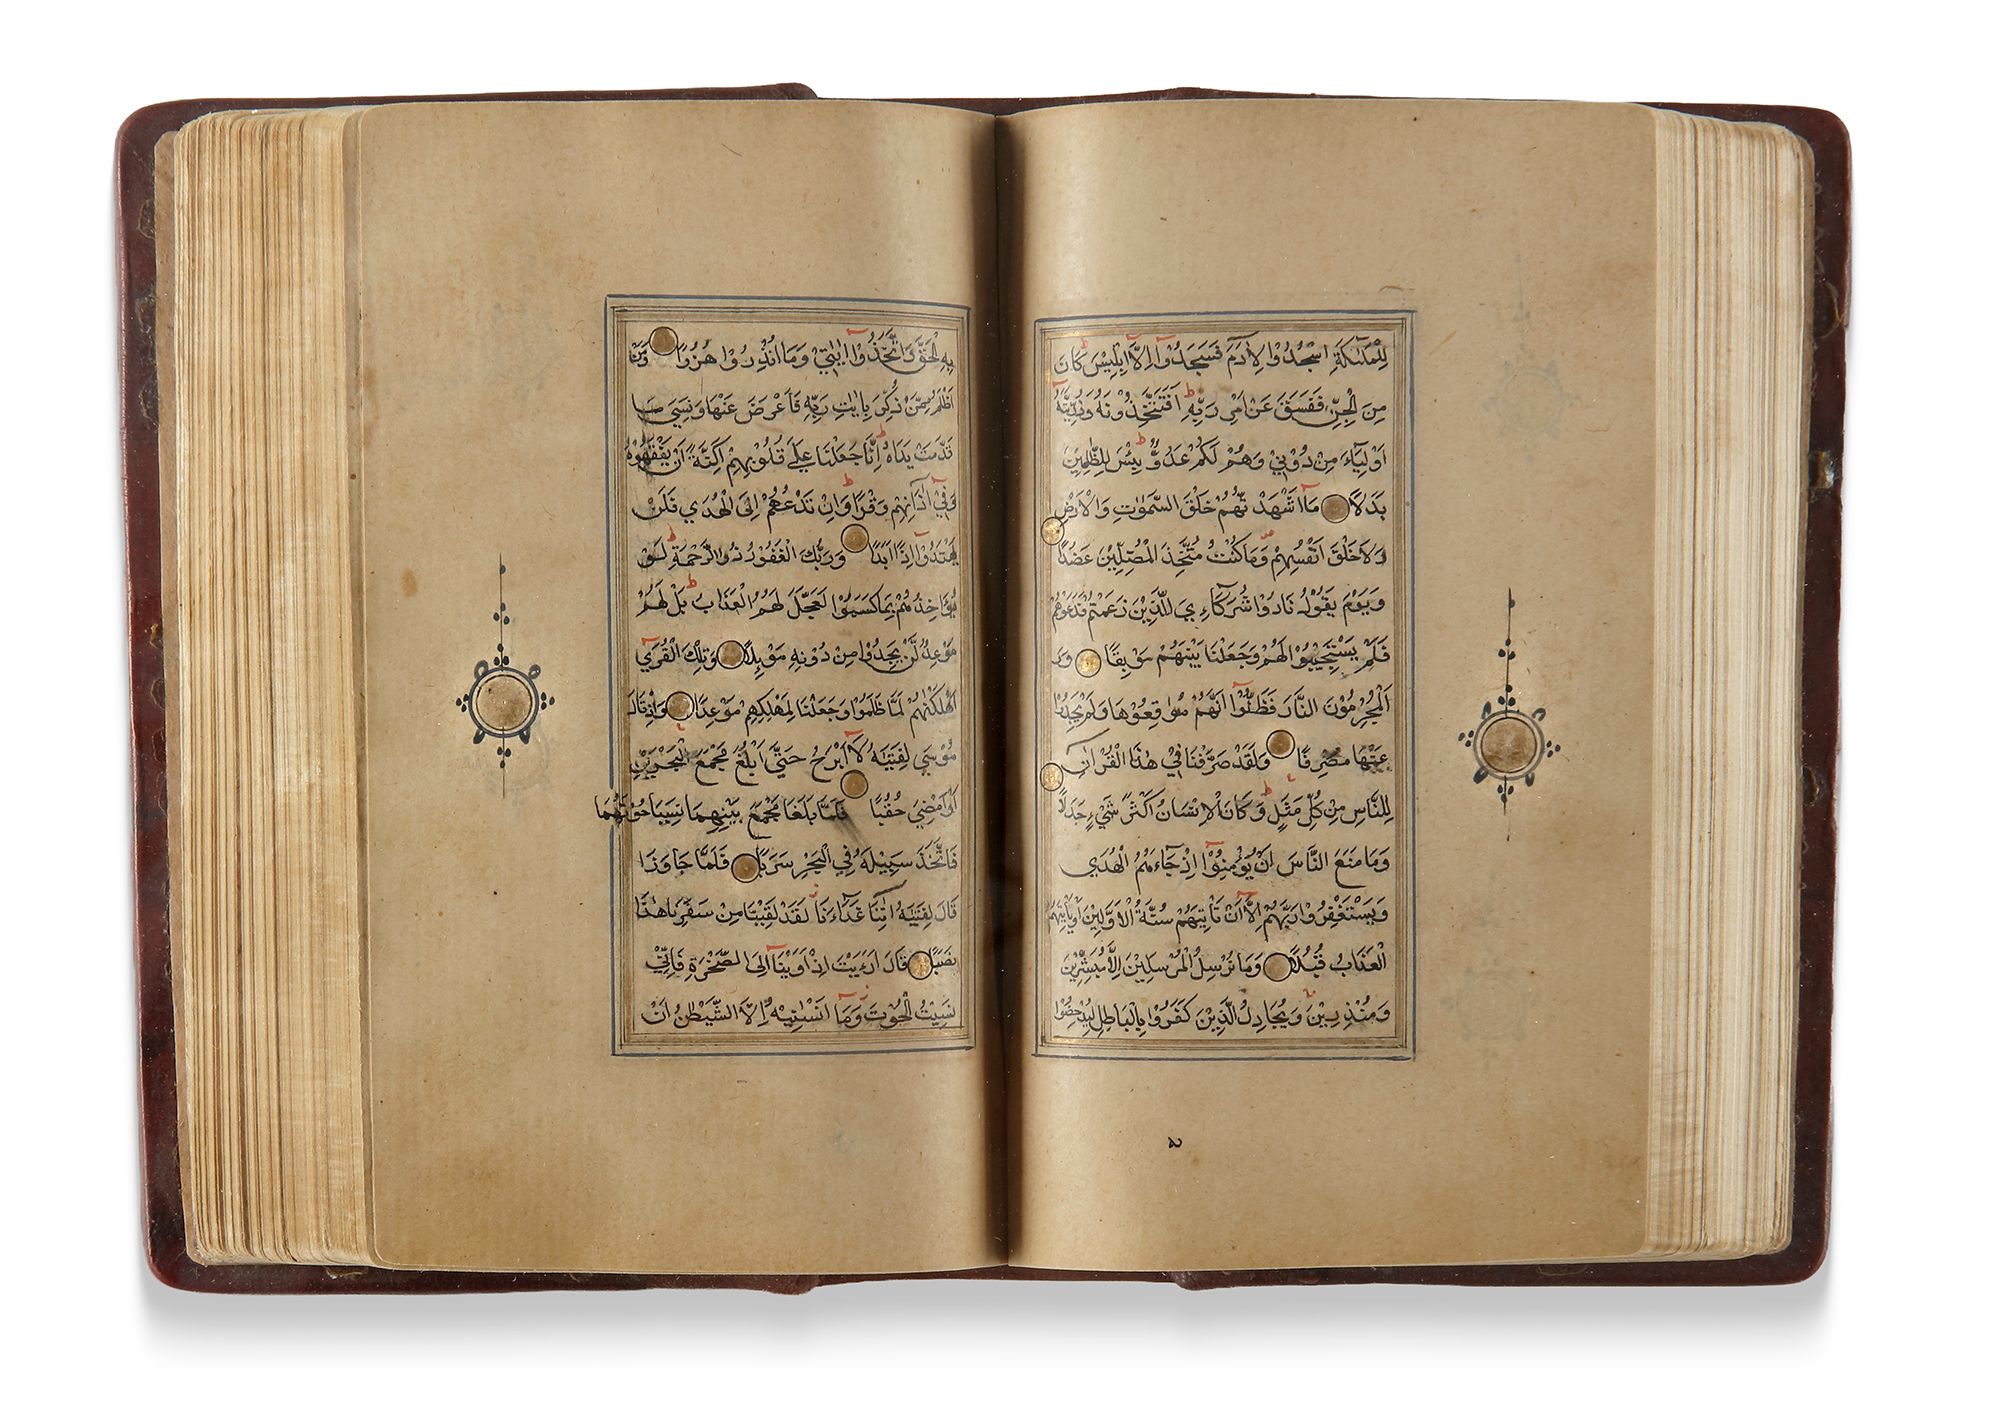 لِلْمَلٰٓئِكَةِ اسْجُدُوْا لِاٰدَمَ فَسَجَدُوْٓا اِلَّآ اِبْلِيْسَ كَانَ
مِنَ الْجِنِّ فَفَسَقَ عَنْ اَمْرِ رَبِّهٖ اَفَتَتَّخِذُوْنَهُ وَذُرِّيَّتَهُٓ
اَوْلِيَآءَ مِنْ دُوْنِيْ وَهُمْ لَكُمْ عَدُوٌّ بِئْسَ لِلظّٰلِمِيْنَ
بَدَلًا مَآ اَشْهَدْتُّهُمْ خَلْقَ السَّمٰوٰتِ وَالْاَرْضِ
وَلَا خَلْقَ اَنْفُسِهِمْ وَمَا كُنْتُ مُتَّخِذَ الْمُضِلِّيْنَ عَضُدًا
وَيَوْمَ يَقُوْلُ نَادُوْا شُرَكَآءِيَ الَّذِيْنَ زَعَمْتُمْ فَدَعَوْهُمْ
فَلَمْ يَسْتَجِيْبُوْا لَهُمْ وَجَعَلْنَا بَيْنَهُمْ مَوْبِقًا وَرَ
اَلْمُجْرِمُوْنَ النَّارَ فَظَنُّوْٓا اَنَّهُمْ مُوَاقِعُوْهَا وَلَمْ يَجِدُوْا
عَنْهَا مَصْرِفًا وَلَقَدْ صَرَّفْنَا فِيْ هٰذَا الْقُرْاٰنِ
لِلنَّاسِ مِنْ كُلِّ مَثَلٍ وَكَانَ الْاِنْسَانُ اَكْثَرَ شَيْءٍ جَدَلًا
وَمَا مَنَعَ النَّاسَ اَنْ يُؤْمِنُوْٓا اِذْ جَآءَهُمُ الْهُدٰي
وَيَسْتَغْفِرُوْا رَبَّهُمْ اِلَّآ اَنْ تَاْتِيَهُمْ سُنَّةُ الْاَوَّلِيْنَ اَوْ يَاْتِيَهُمُ
الْعَذَابُ قُبُلًا وَمَا نُرْسِلُ الْمُرْسَلِيْنَ اِلَّا مُبَشِّرِيْنَ
وَمُنْذِرِيْنَ وَيُجَادِلُ الَّذِيْنَ كَفَرُوْا بِالْبَاطِلِ لِيُدْحِضُوْا
بِهِ الْحَقَّ وَاتَّخَذُوْٓا اٰيٰتِيْ وَمَا اُنْذِرُوْا هُزُوًا وَمَنْ
اَظْلَمُ مِمَّنْ ذُكِّرَ بِاٰيٰتِ رَبِّهٖ فَاَعْرَضَ عَنْهَا وَنَسِيَ مَا
قَدَّمَتْ يَدَاهُ اِنَّا جَعَلْنَا عَلٰي قُلُوْبِهِمْ اَكِنَّةً اَنْ يَفْقَهُوْهُ
وَفِيْٓ اٰذَانِهِمْ وَقْرًا وَاِنْ تَدْعُهُمْ اِلَى الْهُدٰي فَلَنْ
يَهْتَدُوْٓا اِذًا اَبَدًا وَرَبُّكَ الْغَفُوْرُ ذُو الرَّحْمَةِ لَوْ
يُؤَاخِذُهُمْ بِمَا كَسَبُوْا لَعَجَّلَ لَهُمُ الْعَذَابَ بَلْ لَهُمْ
مَوْعِدٌ لَنْ يَجِدُوْا مِنْ دُوْنِهٖ مَوْئِلًا وَتِلْكَ الْقُرٰٓي
اَهْلَكْنٰهُمْ لَمَّا ظَلَمُوْا وَجَعَلْنَا لِمَهْلِكِهِمْ مَوْعِدًا وَاِذْ قَالَ
مُوْسٰي لِفَتٰىهُ لَآ اَبْرَحُ حَتّٰٓي اَبْلُغَ مَجْمَعَ الْبَحْرَيْنِ
اَوْ اَمْضِيَ حُقُبًا فَلَمَّا بَلَغَا مَجْمَعَ بَيْنِهِمَا نَسِيَا حُوْتَهُمَا
فَاتَّخَذَ سَبِيْلَهُ فِي الْبَحْرِ سَرَبًا فَلَمَّا جَاوَزَا
قَالَ لِفَتٰىهُ اٰتِنَا غَدَآءَنَا لَقَدْ لَقِيْنَا مِنْ سَفَرِنَا هٰذَا
نَصَبًا قَالَ اَرَءَيْتَ اِذْ اَوَيْنَآ اِلَى الصَّخْرَةِ فَاِنِّيْ
نَسِيْتُ الْحُوْتَ وَمَآ اَنْسٰنِيْهُ اِلَّا الشَّيْطٰنُ اَنْ